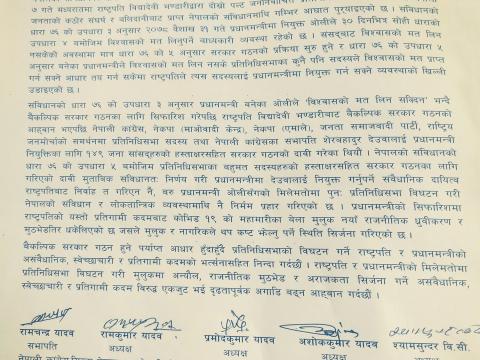 ७ गते मध्यरातमा राष्ट्रपति विद्यादेवी भण्डारीद्वारा दोस्रो पल्ट जननिर्वाचित
व्यवस्थामाथि गम्भिर आघात पुर्‍याइएको छ। संविधानको
जनताको कठोर संघर्ष र बलिदानीबाट प्राप्त नेपालको संविधानमाथि
धारा ७६ को उपधारा ३ अनुसार २०७८ वैशाख ३१ गते प्रधानमन्त्री नियुक्त ओलीले ३० दिनभित्र सोही धाराको
उपधारा ४ बमोजिम विश्वासको मत लिनुपर्ने बाध्यकारी व्यवस्था रहेको छ । संसद्बाट विश्वासको मत लिन
नसकेको अवस्थामा मात्र धारा ७६ को ५ अनुसार सरकार गठनको प्रक्रिया सुरु हुने र धारा ७६ को उपधारा ५
अनुसार बनेका प्रधानमन्त्रीले विश्वासको मत लिन नसके प्रतिनिधिसभाका कुनै पनि सदस्यले विश्वासको मत प्राप्त
गर्न सक्ने आधार तय गर्न सकेमा राष्ट्रपतिले त्यस सदस्यलाई प्रधानमन्त्रीमा नियुक्त गर्न सक्ने व्यवस्थाको खिल्ली
उडाइएको छ ।
संविधानको धारा ७६ को उपधारा ३ अनुसार प्रधानमन्त्री बनेका ओलीले 'विश्वासको मत लिन सक्दिन' भन्दै
बैकल्पिक सरकार गठनका लागि सिफारिश गरेपछि राष्ट्रपति विद्यादेवी भण्डारीबाट बैकल्पिक सरकार गठनको
आह्वान भएपछि नेपाली कांग्रेस, नेकपा (माओवादी केन्द्र), नेकपा (एमाले), जनता समाजवादी पार्टी, राष्ट्रिय
जनमोर्चाको समर्थनमा प्रतिनिधिसभा सदस्य तथा नेपाली कांग्रेसका सभापति शेरबहादुर देउवालाई प्रधानमन्त्री
नियुक्तिका लागि १४९ जना सांसद्हरुको हस्ताक्षरसहित सरकार गठनको दाबी गरेका थियौं । नेपालको संविधानको
धारा ७६ को उपधारा ५ बमोजिम प्रतिनिधिसभाका बहुमत सदस्यहरुको हस्ताक्षरसहित सरकार गठनका लागि
गरिएको दावी मुताबिक संविधानतः निर्णय गरी प्रधानमन्त्रीमा देउवालाई नियुक्त गर्नुपर्ने संवैधानिक दायित्व
राष्ट्रपतिबाट निर्वाह त गरिएन नै, बरु प्रधानमन्त्री ओलीसँगको मिलेमतोमा पुनः प्रतिनिधिसभा विघटन गरी
नेपालको संविधान र लोकतान्त्रिक व्यवस्थामाथि नै निर्मम प्रहार गरिएको छ । प्रधानमन्त्रीको सिफारिशमा
राष्ट्रपतिको यस्तो प्रतिगामी कदमबाट कोभिड १९ को महामारीका बेला मुलुक नयाँ राजनीतिक ध्रुवीकरण र
मुठभेडतिर धकेलिएको छ जसले मुलुक र नागरिकले थप कष्ट भोग्नु पर्ने स्थिति सिर्जना गरिएको छ ।
बैकल्पिक सरकार गठन हुने पर्याप्त आधार हुँदाहुँदै प्रतिनिधिसभाको विघटन गर्ने राष्ट्रपति र प्रधानमन्त्रीको
असंवैधानिक, स्वेच्छाचारी र प्रतिगामी कदमको भर्त्सनासहित निन्दा गर्दछौं । राष्ट्रपति र प्रधानमन्त्रीको मिलेमतोमा
प्रतिनिधिसभा विघटन गरी मुलुकमा अन्यौल, राजनीतिक मुठभेड र अराजकता सिर्जना गर्ने असंवैधानिक,
स्वेच्छाचारी र प्रतिगामी कदम विरुद्ध एकजुट भई दृढतापूर्वक अगाडि बढ्न आह्वान गर्दछौं ।
रामचन्द्र यादव रामकुमार यादव प्रमोदकुमार यादव अशोककुमार यादव श्यामसुन्दर बि.सी.
सभापति अध्यक्ष अध्यक्ष अध्यक्ष अध्यक्ष